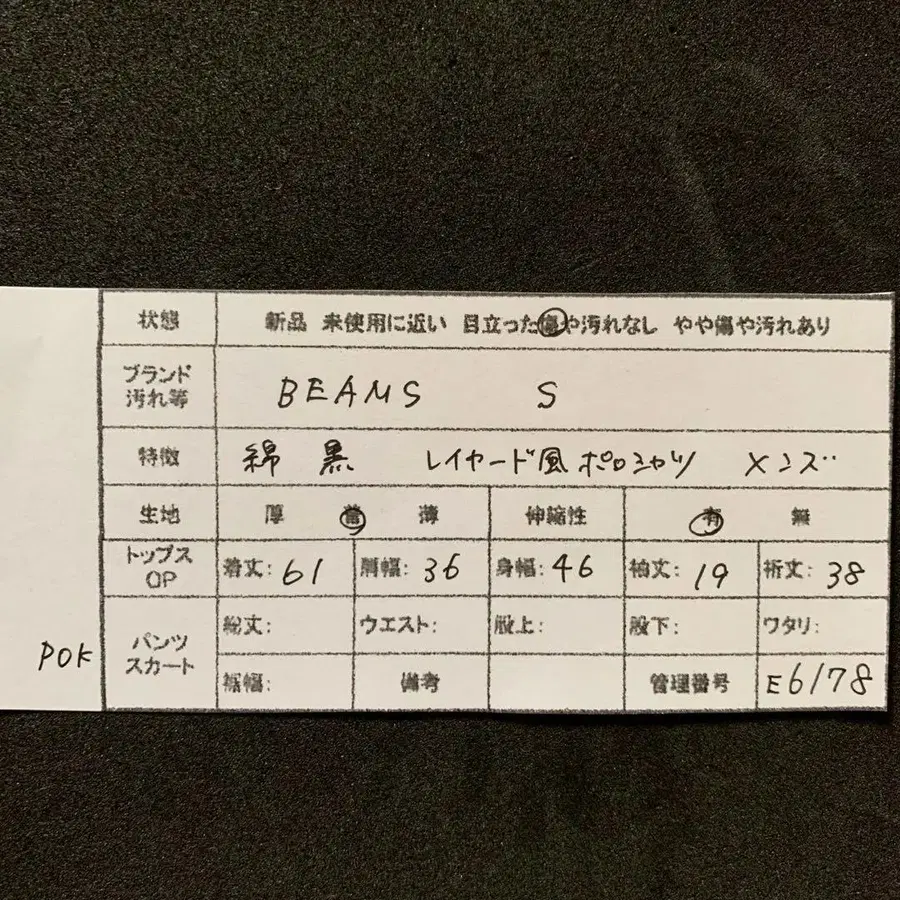 状態 新品 未使用に近い 目立った傷や汚れなし やや傷や汚れあり
ブランド
汚れ等
BEAMS S
特徴 綿 黒 レイヤード風ポロシャツ メンズ
生地 厚 普 薄 伸縮性 有 無
トップス
OP
着丈: 61 肩幅: 36 身幅: 46 袖丈: 19 裄丈: 38
パンツ
スカート
総丈: ウエスト: 股上: 股下: ワタリ:
裾幅: 備考 管理番号 E6178
POK